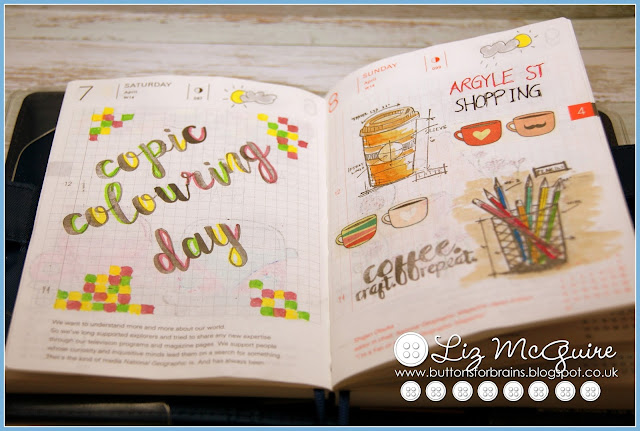 7
SATURDAY
April
copic
colouring
day
12
14
We want to understand more and more about our world.
So we've long supported explorers and tried to share any new expertise
through our television programs and magazine pages. We support people
whose curiosity and inquisitive minds lead them on a search for something
That's the kind of media National Geographic is. And has always been.
8
SUNDAY
April
ARGYLE ST
SHOPPING
4
SLEEVE
coffee.
craft.
repeat.
Liz McGuire
www.buttonsforbrains.blogspot.co.uk